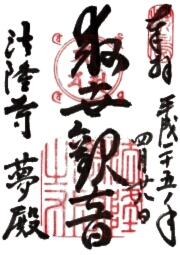 奉拝
平成二十五年
四月廿八日
救世観音
法隆寺 夢殿